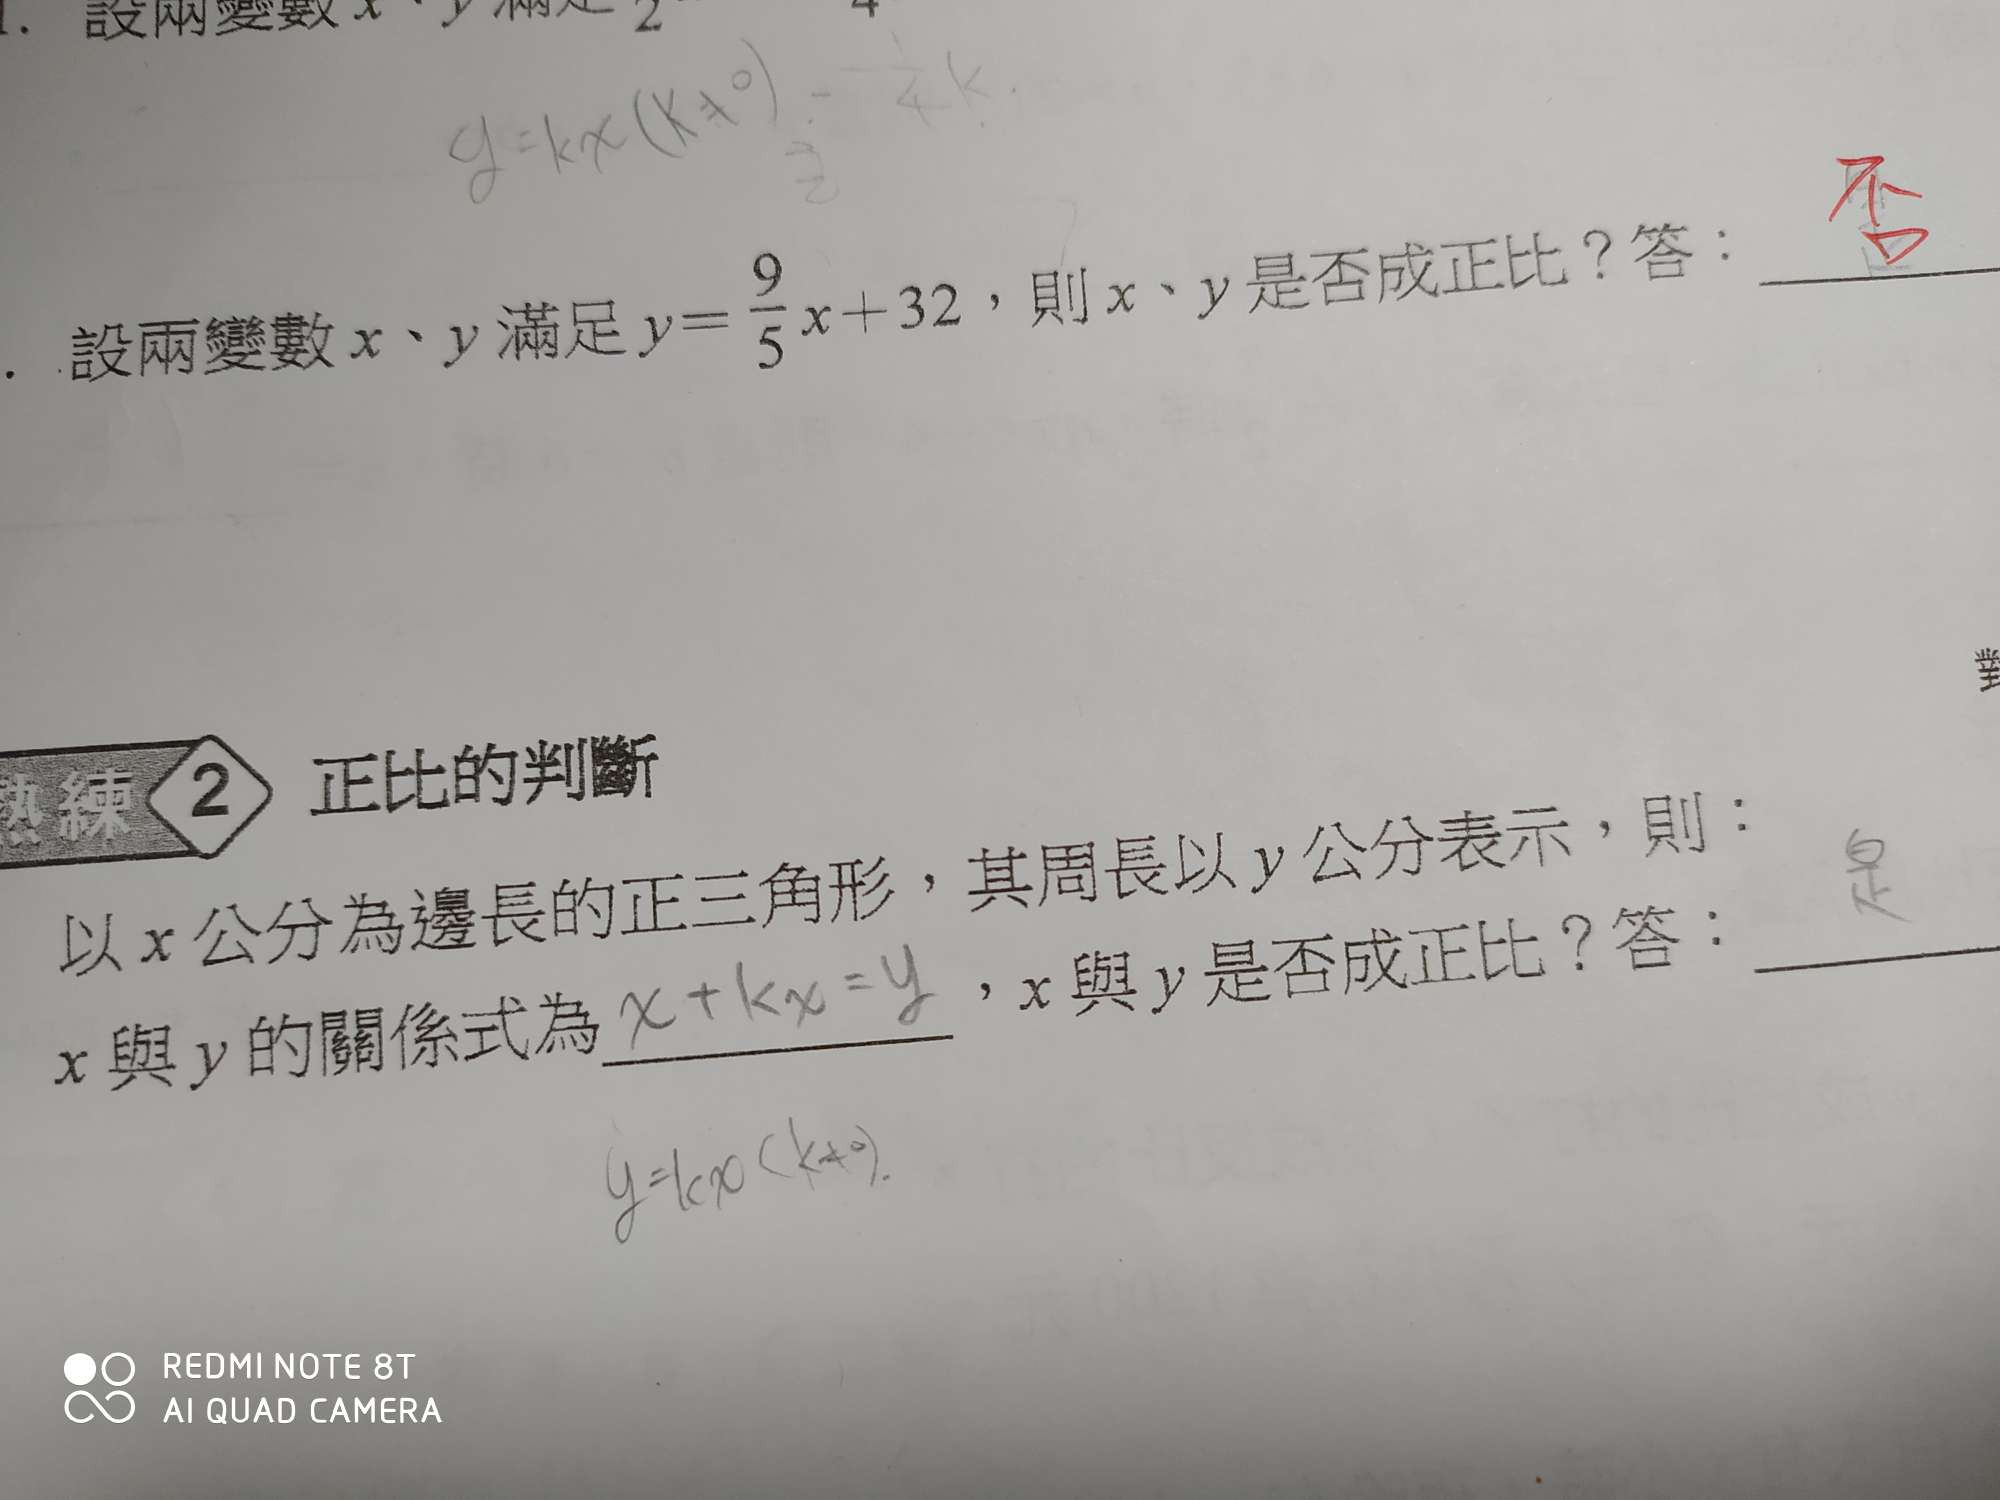 1. 設兩變數 x、y 滿足
y=kx(k≠0)
否
. 設兩變數 x、y 滿足 y=9/5x+32,則 x、y 是否成正比?答:
對
熟練 2 正比的判斷
以 x 公分為邊長的正三角形,其周長以 y 公分表示,則:
x 與 y 的關係式為 x+kx=y ,x 與 y 是否成正比?答: 是
y=kx(k≠0).
REDMI NOTE 8T
AI QUAD CAMERA